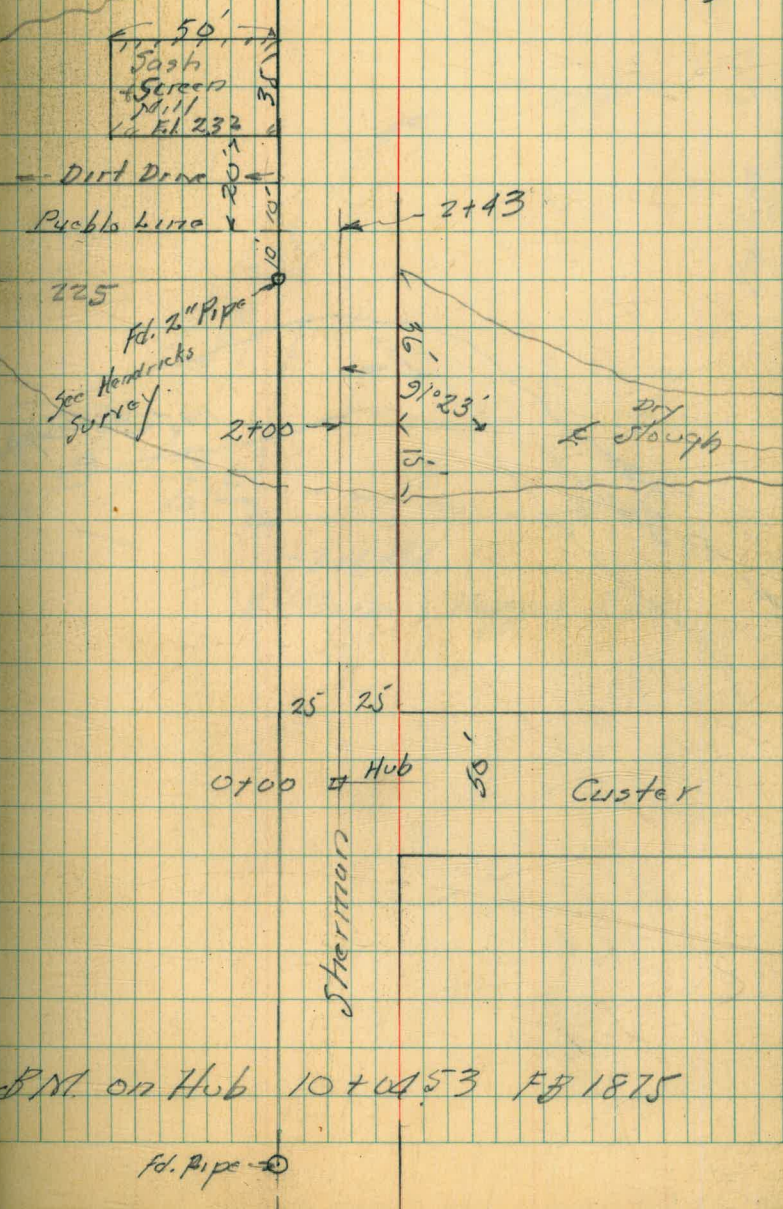 50'
Sash
+ Screen
Mill
El. 232
35'
Dirt Drive
20'
10'
Pueblo Line
2+43
10'
225
Fd. 2" Pipe
See Hendricks
Survey
36'
91°23'
2+00
Dry
℄ Slough
15'
25 25
0+00 Hub
50'
Custer
Sherman
B.M. on Hub 10+04.53 FB 1875
Fd. Pipe